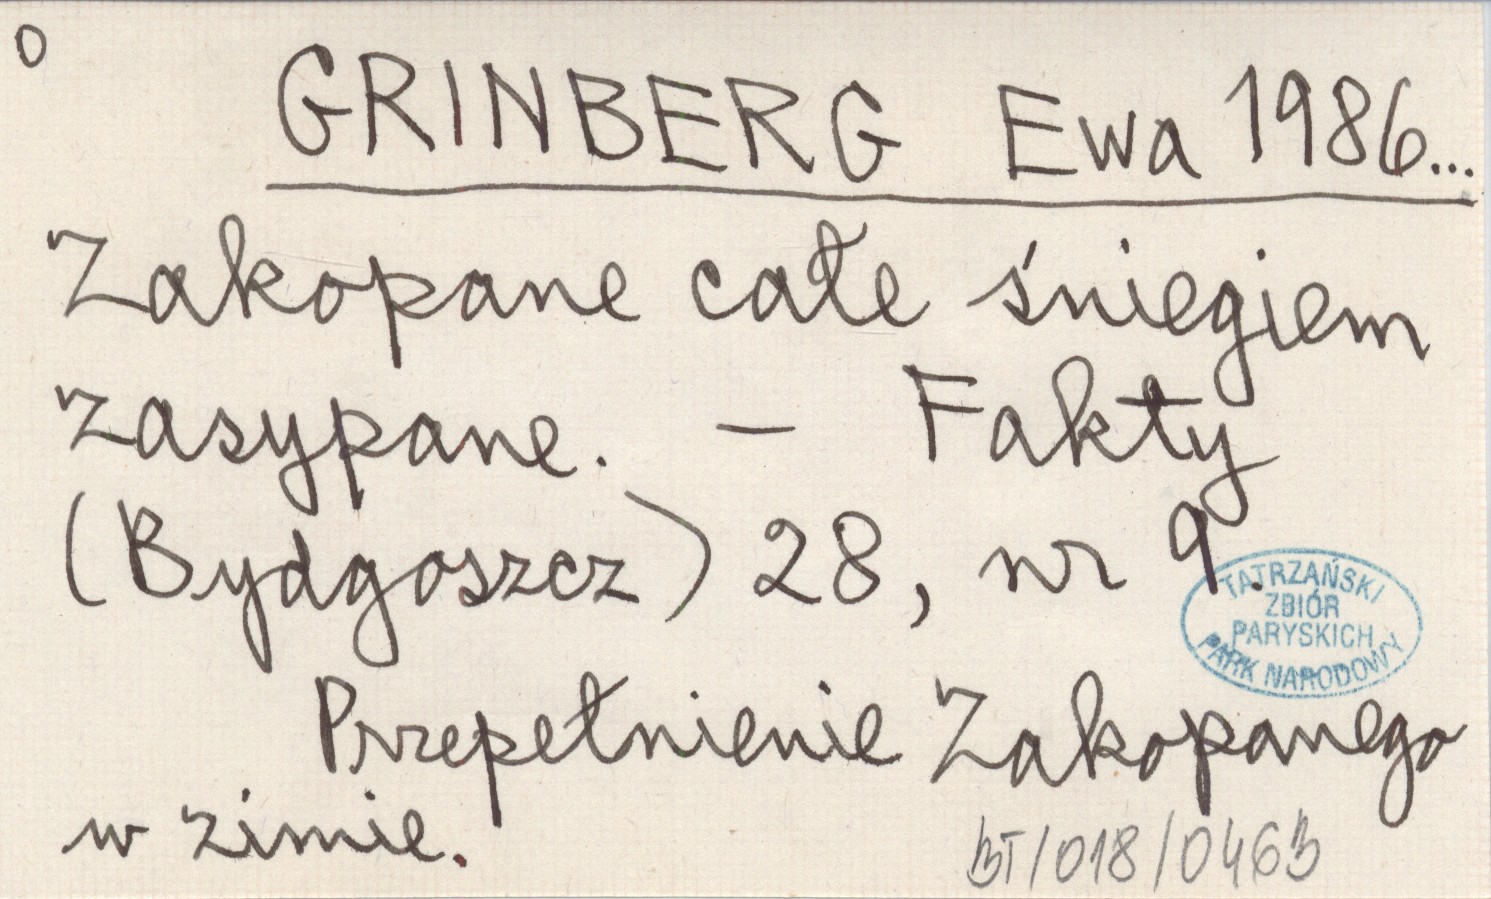 o
GRINBERG Ewa 1986...
Zakopane całe śniegiem
zasypane. — Fakty
(Bydgoszcz) 28, nr 9.
TATRZAŃSKI
ZBIÓR
PARYSKICH
PARK NARODOWY
Przepełnienie Zakopanego
w zimie.
BT/018/0463